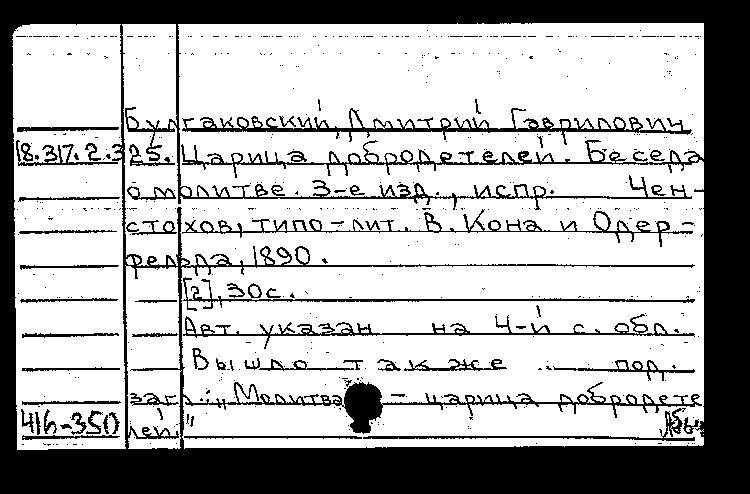 Булгаковский, Дмитрий Гаврилович
18.317.2.325. Царица добродетелей. Беседа
о молитве. 3-е изд., испр. Чен-
стохов, типо-лит. В. Кона и Одер-
фельда, 1890.
[2], 30с.
Авт. указан на 4-й с. обл.
Вышло также под
загл.: „Молитва - царица добродете
416-350 лей."